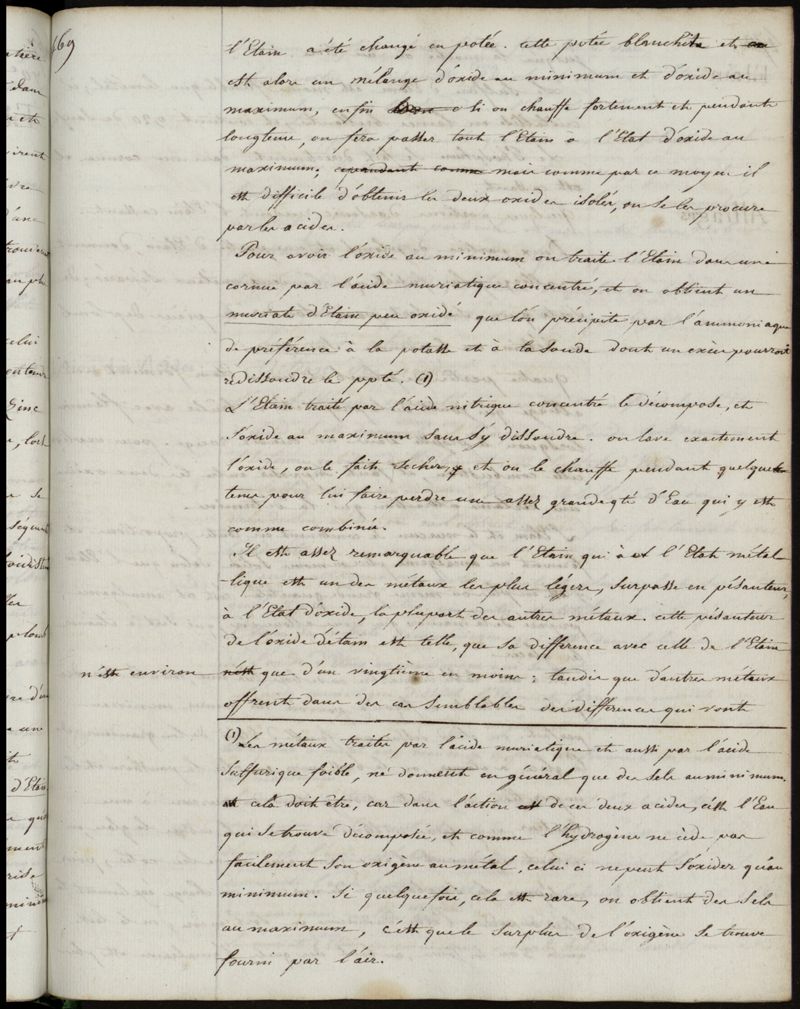 169
l'Etain a été changé en potée. cette potée blanchit et en
est alors un mélange d'oxide au minimum et d'oxide au
maximum, enfin si on chauffe fortement et pendant
longtems, on fera passer tout l'Etain a l'Etat d'oxide au
maximum, cependant comme mais comme par ce moyen il
est difficile d'obtenir les deux oxides isolés, on se les procure
par les acides.
Pour avoir l'oxide au minimum on traite l'Etain dans une
cornue par l'acide muriatique concentré, et on obtient un
muriate d'Etain peu oxidé que l'on précipite par l'ammoniaque
de préférence à la potasse et à la soude dont un excès pourroit
redissoudre le ppté. (1)
L'Etain traité par l'acide nitrique concentré le décompose, et
s'oxide au maximum sans s'y dissoudre. on lave exactement
l'oxide, on le fait secher, et on le chauffe pendant quelque
tems pour lui faire perdre une assez grande qté d'Eau qui y est
comme combinée.
Il est assez remarquable que l'Etain qui à l'Etat métal
-lique est un des métaux les plus légers, surpasse en pésanteur,
à l'Etat d'oxide, la plupart des autres métaux. cette pésanteur
de l'oxide d'étain est telle, que sa difference avec celle de l'Etain
n'est environ n'est que d'un vingtième en moins; tandis que d'autres métaux
offrent dans des cas semblables des différences qui vont
(1) Les métaux traités par l'acide muriatique et aussi par l'acide
sulfurique foible, ne donnent en général que des sels au minimum.
et cela doit être, car dans l'action de ces deux acides, c'est l'Eau
qui se trouve décomposée, et comme l'hydrogène ne cède pas
facilement son oxigène au métal, celui ci ne peut s'oxider qu'au
minimum. Si quelquefois, cela est rare, on obtient des sels
au maximum, c'est que le surplus de l'oxigène se trouve
fourni par l'air.